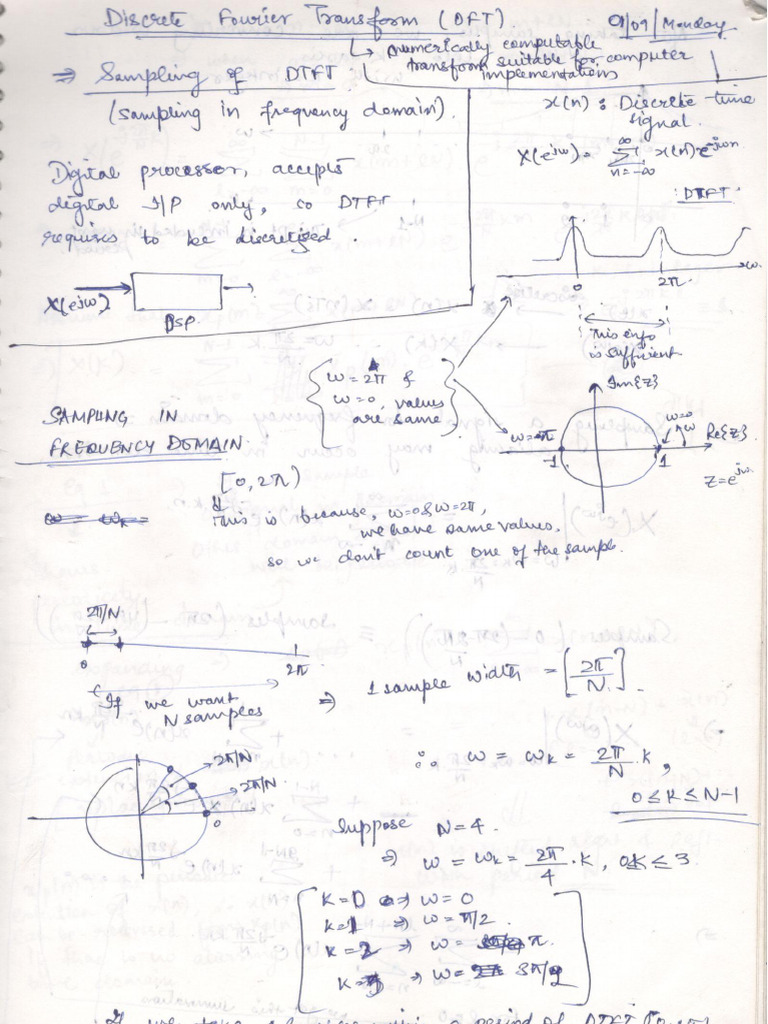 Discrete Fourier Transform (DFT).
01/09/Monday
↳ numerically computable
transform suitable for computer
implementations
⇒ Sampling of DTFT
(sampling in frequency domain).
x(n) : Discrete-time
signal.
X(e^{jω}) = Σ_{n=-∞}^{∞} x(n)e^{-jωn}
: DTFT
Digital processor, accepts
digital I/P only, so DTFT
requires to be discretized.
X(e^{jω})
DSP.
0
2π
ω
This info
is sufficient
ω = 2π &
ω=0, values
are same
Im{z}
ω=0
ω
Re{z}
ω=π
-1
1
z=e^{jω}
SAMPLING IN
FREQUENCY DOMAIN.
[0, 2π)
This is because, ω=0 & ω=2π,
we have same values.
so we don't count one of the sample.
2π/N
0
2π
If we want
N samples
⇒ 1 sample width = [2π/N].
2π/N
2π/N
0
∴ ω = ω_k = 2π/N . k,
0≤k≤N-1
Suppose N=4.
⇒ ω = ω_k = 2π/4 . k, 0≤k≤3.
k=0 ⇒ ω=0
k=1 ⇒ ω=π/2.
k=2 ⇒ ω= π.
k=3 ⇒ ω= 3π/2
a period of DTFT